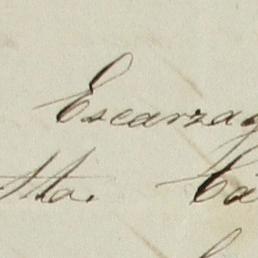 Escarzag
tta. Ca